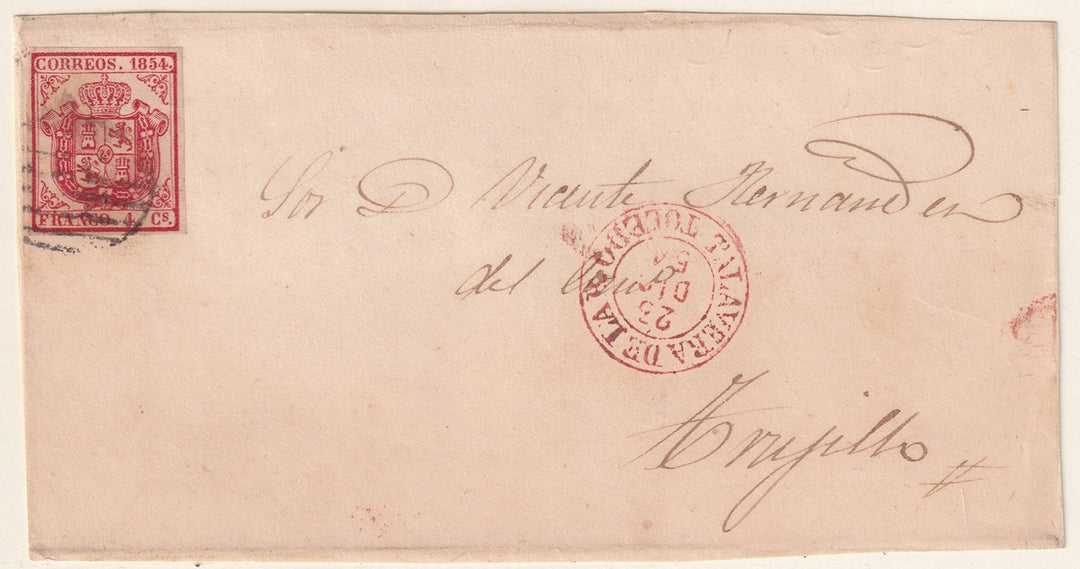 CORREOS. 1854.
FRANCO. 4 CS.
Sor D Vicente Hernandez
del Camo
TALAVERA DE LA R. TOLEDO
23
DIC
54
Trujillo